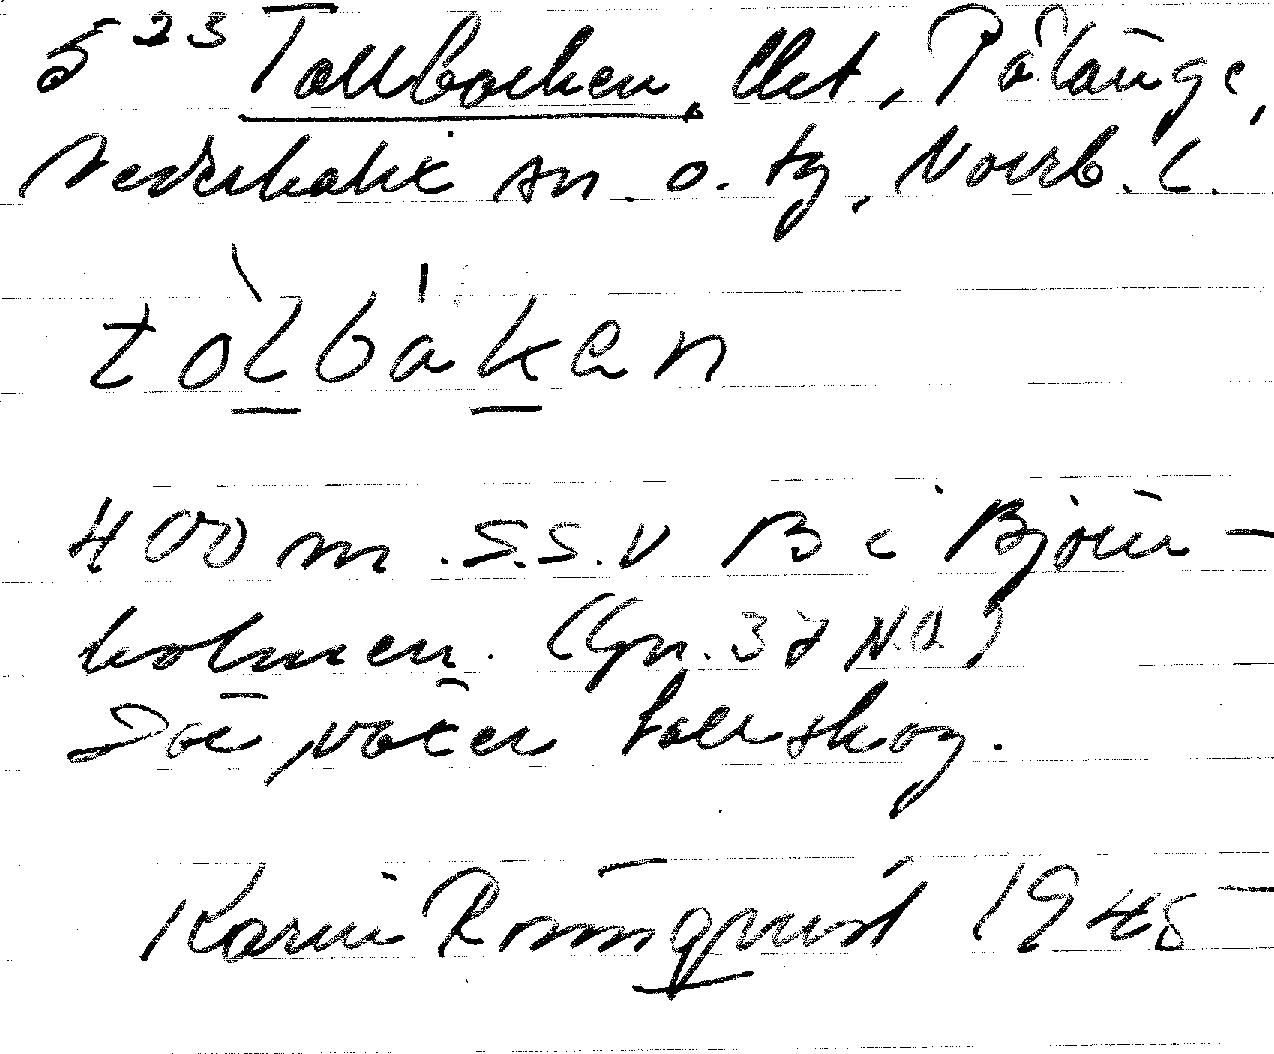 523 Tallbacken, Utt, Pålänge,
Nederkalix sn. o. tg, Norrb. l.
tòlbáken
400 m. S.S.V B i Björn-
holmen. (Gn. 37 N.O.)
Där växer tallskog.
Karin Rönnqvist 1945